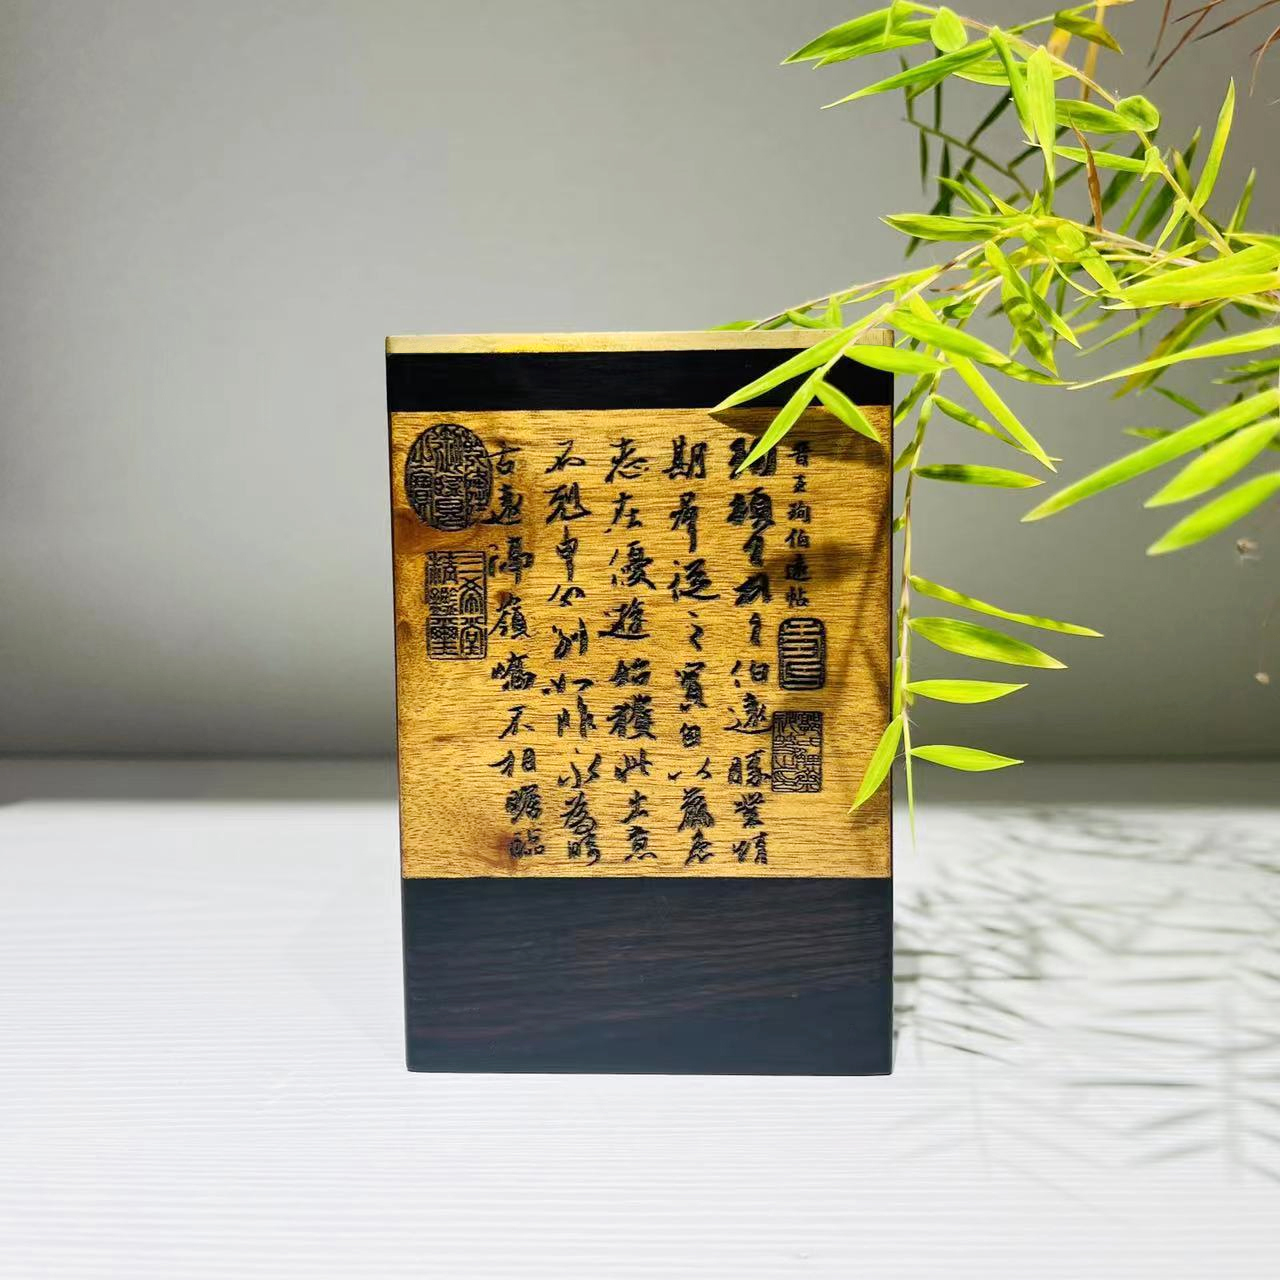 晉王珣伯遠帖
珣頓首頓首伯遠勝業情
期羣從之寶自以羸患
志在優遊始獲此出意
不剋申分別如昨永為疇
古遠隔嶺嶠不相瞻臨
三希堂
精鑑璽